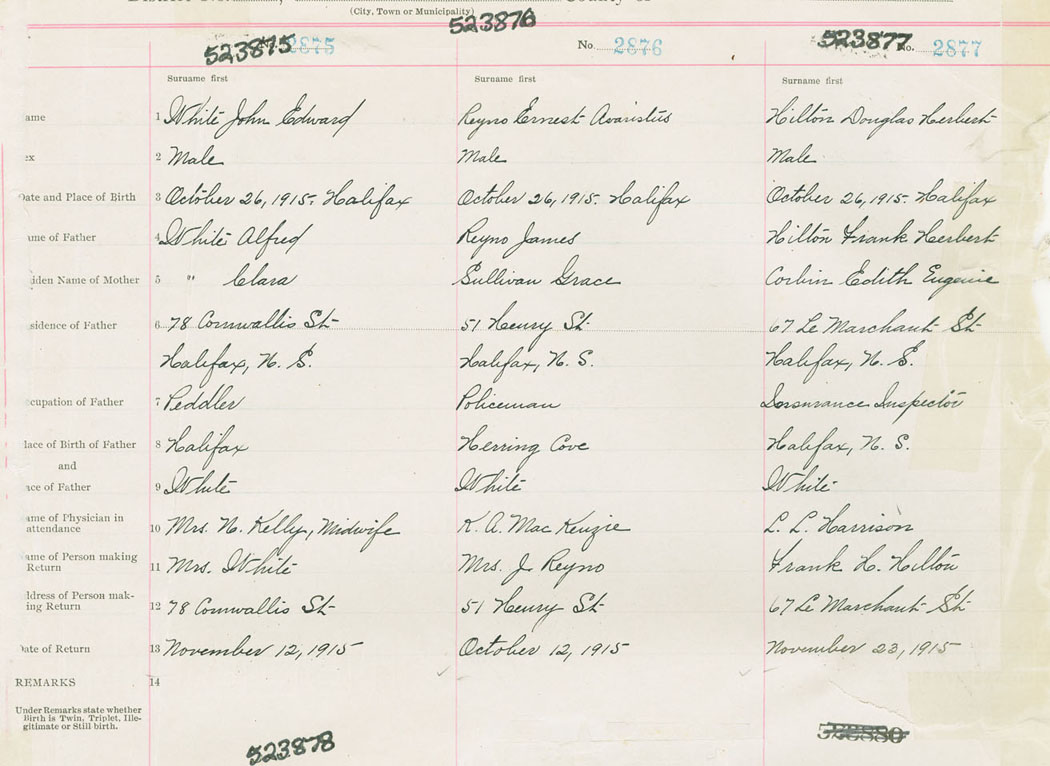 (City, Town or Municipality)
523875 2875
523876
No. 2876
523877 No. 2877
Surname first Surname first Surname first
ame 1 White John Edward Reyno Ernest Avaristus Hilton Douglas Herbert
ex 2 Male Male Male
Date and Place of Birth 3 October 26, 1915. Halifax October 26, 1915. Halifax October 26, 1915. Halifax
ame of Father 4 White Alfred Reyno James Hilton Frank Herbert
iden Name of Mother 5 " Clara Sullivan Grace Corbin Edith Eugenie
sidence of Father 6 78 Cornwallis St 51 Henry St 67 Le Marchant St
Halifax, N. S. Halifax, N. S. Halifax, N. S.
cupation of Father 7 Peddler Policeman Inspector
lace of Birth of Father 8 Halifax Herring Cove Halifax, N. S.
and
ace of Father 9 White White White
ame of Physician in
attendance 10 Mrs. N. Kelly, Midwife K. A. Mac Kenzie L. L. Harrison
ame of Person making
Return 11 Mrs. White Mrs. J Reyno Frank H. Hilton
ddress of Person mak-
ing Return 12 78 Cornwallis St 51 Henry St 67 Le Marchant St
Date of Return 13 November 12, 1915 October 12, 1915 November 23, 1915
REMARKS 14
Under Remarks state whether
Birth is Twin, Triplet, Ille-
gitimate or Still-birth.
523878